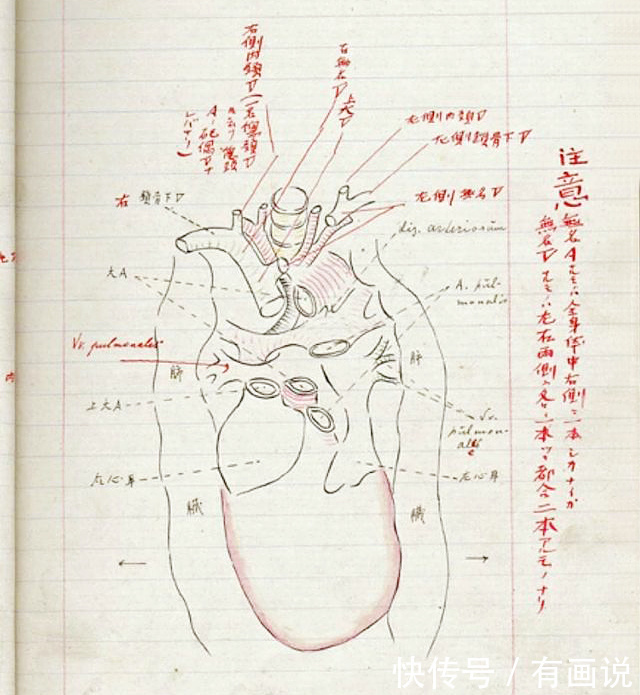 右側内頸V
右無名V
上大V
左側内頸V
左側鎖骨下V
左側無名V
右鎖骨下V
lig. arteriosum
大A
A. pul-
monalis
Vv. pulmonales
肺
肺
上大A
Vv.
pulmon-
ales
左心耳
左心耳
臓
臓
注意
無名A
全身体中右側ニ一本シカナイガ
無名V
左右両側ニ各々一本ツヽ都合二本アルモノナリ
快传号 / 有画说